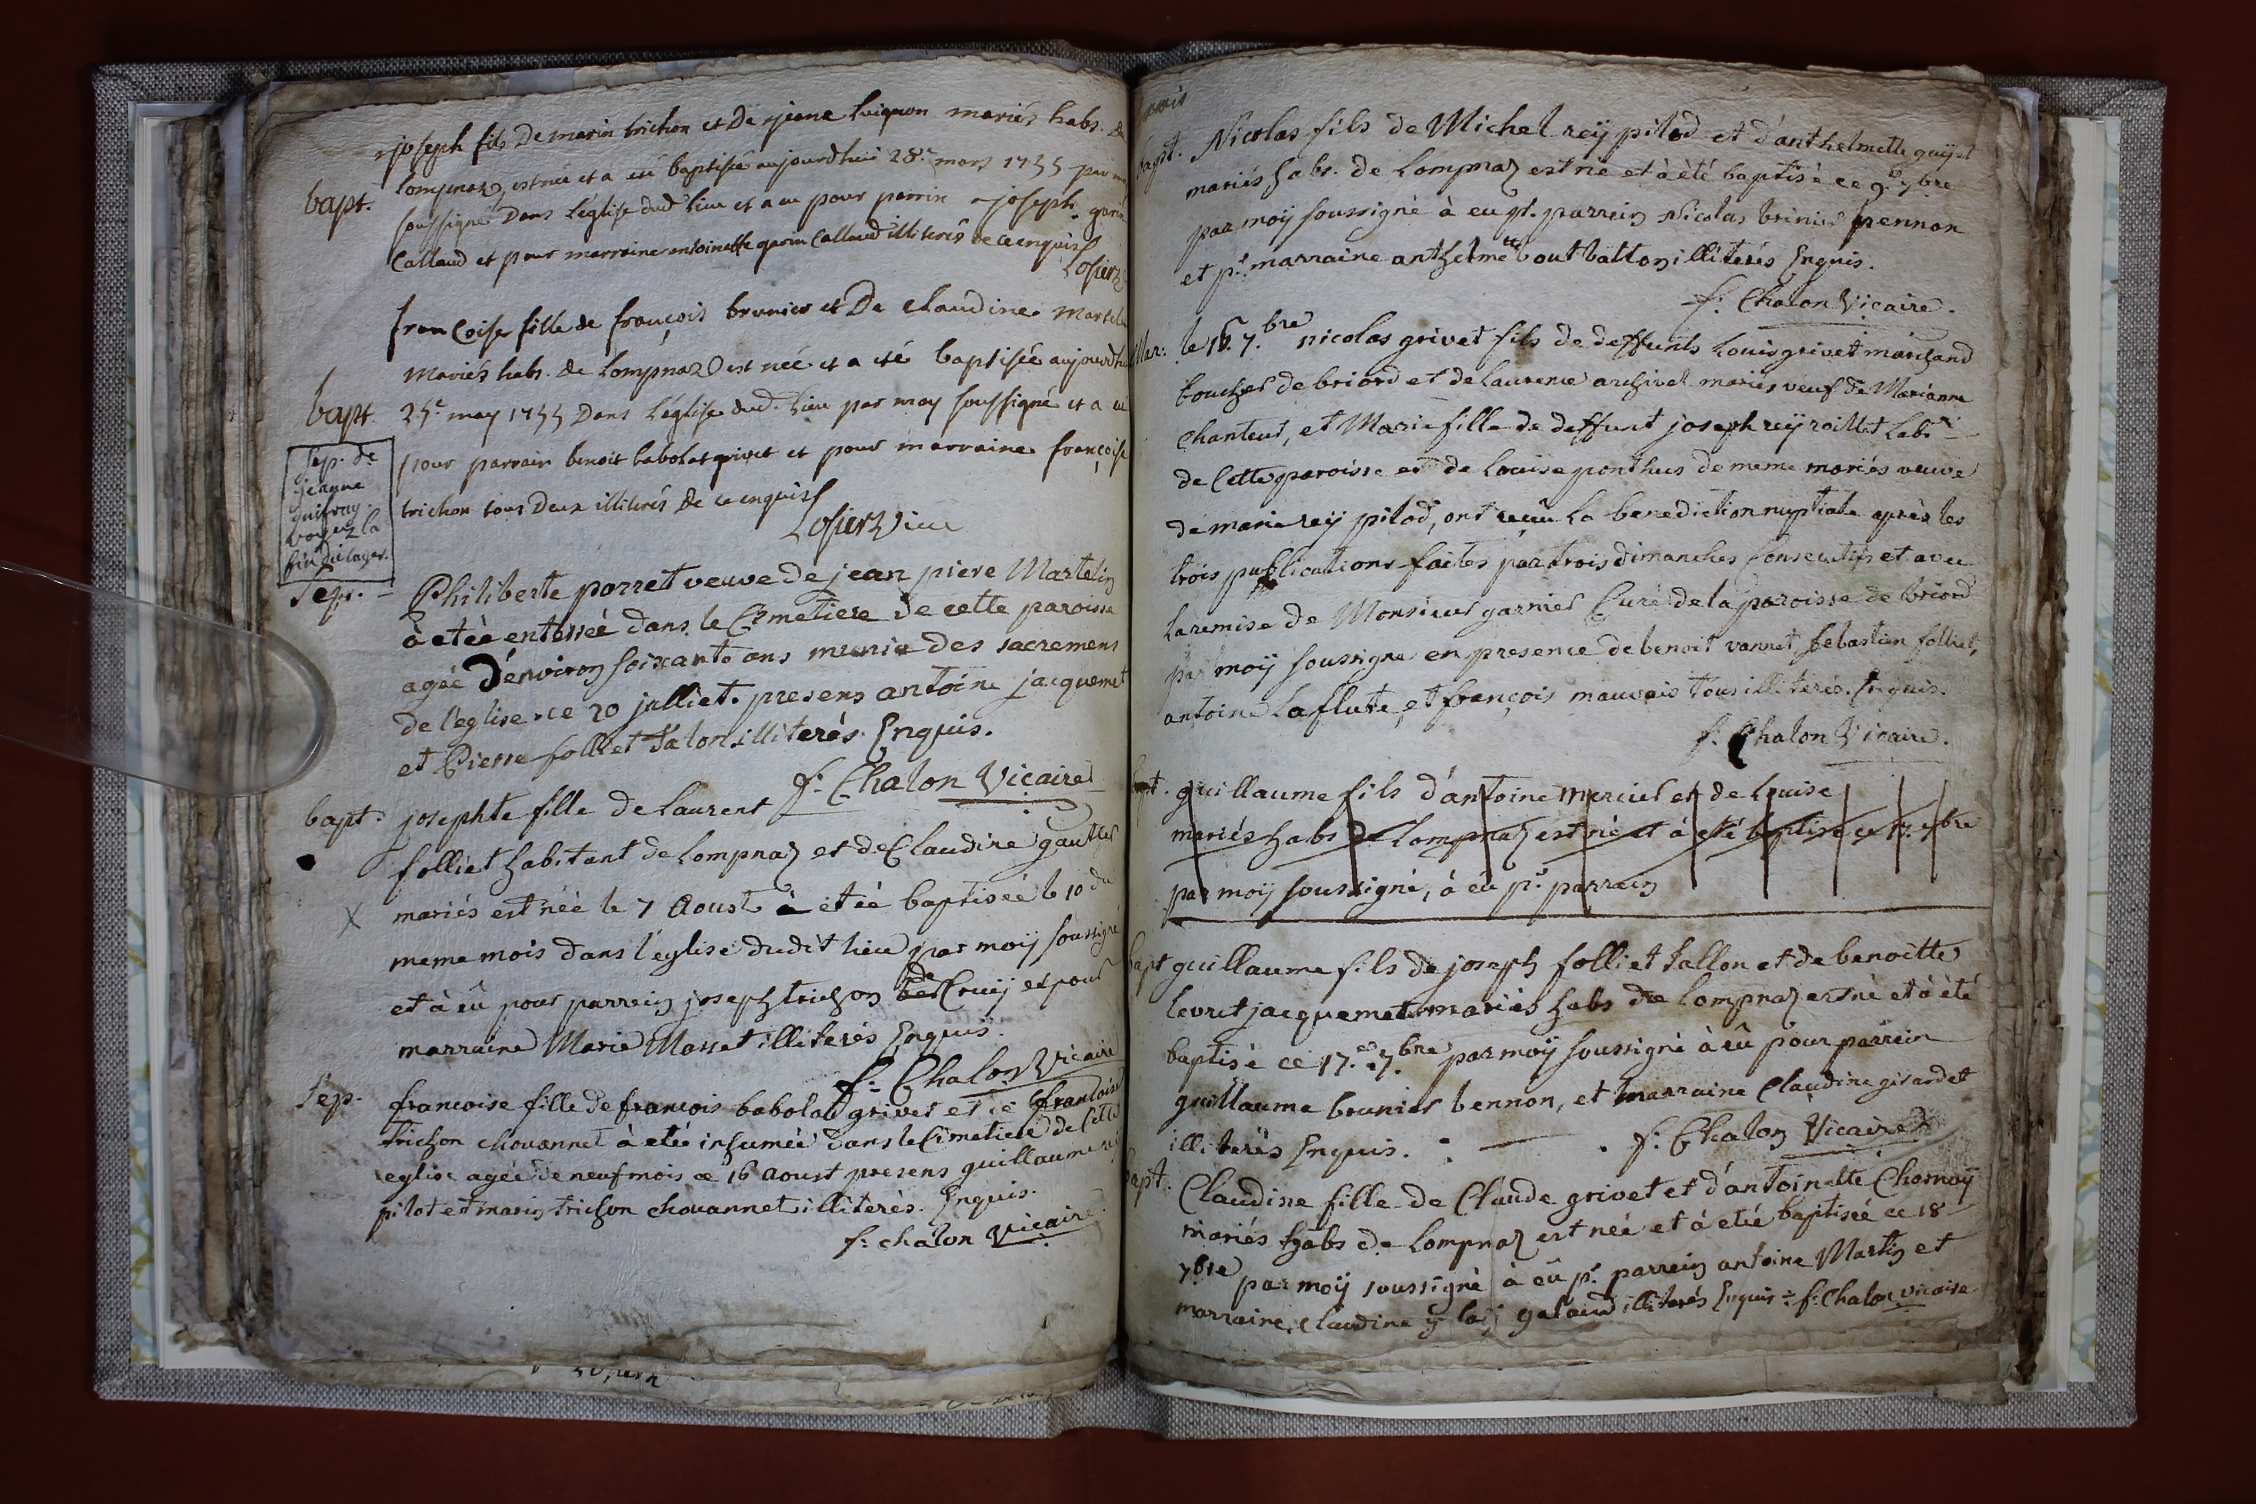 joseph fils De marin trichon et De jeane Guignon mariés habs. de
bapt.
Lompnaz, est né et a eté baptisé aujourdhui 28e mars 1755 par moy
soussigné Dans l'église dud. lieu et a eu pour parrin joseph garin
Callaud et pour marraine antoinette garin Callaud illiterés de ce enquis
Losier
francoise fille de françois brunier et De claudine Martel
mariés habs. de Lompnaz est née et a eté baptisée aujourdhui
bapt.
25e may 1755 Dans l'église dud. lieu par moy soussigné et a eu
pour parrain benoit babolat grivet et pour marraine françoise
trichon tous Deux illiterés de ce enquis
Losier vicaire
Sep. de
jeanne
guifray
voyez la
fin du cayer.
Sep.
Philiberte porret veuve de jean piere Martelin
à etèe enterrée dans le Cimetiere de cette paroisse
agée d'environ soixante ans munie des sacremens
de l'eglise ce 20 julliet. presens antoine jacquemet
et Pierre folliet Talon illiterés. Enquis.
f. Chalon Vicaire
bapt.
josephte fille de laurent
folliet habitant de Lompnaz et de Claudine gautier
mariés est née le 7 Aoust à etée baptisée le 10 du
meme mois dans l'eglise dudit lieu par moÿ soussigné
et à eû pour parrein joseph trichon de Cruij et pour
marraine Marie Masset illiterés Enquis.
f. Chalon Vicaire
Sep.
francoise fille de françois babolat grivet et de francoise
trichon chouannet à etée inhumée dans le Cimetiere de Cette
eglise agée de neuf mois ce 16 aoust presens guillaume reÿ
pilot et marin trichon chouannet illiterès. Enquis.
f. chalon Vicaire.
bapt.
Nicolas fils de Michel reÿ pilod et d'anthelmette guijot
mariés habs. de Lompnaz est né et à èté baptisé ce 9e 7bre
par moÿ soussigné à eu pr. parrein Nicolas brunier bennon
et pr. marraine anthelmette bout batton illiterés Enquis.
f. Chalon Vicaire.
Mar:
le 16. 7.bre nicolas grivet fils de deffunts Louis grivet marchand
boucher de briord et de laurence archivet mariés veuf de Marianne
chanteur, et Marie fille de deffunt joseph reÿ roillet Labr.
de Cette paroisse et de Louise ponthus de meme mariés veuve
de marie reÿ pilod, ont reçu la benediction nuptiale après les
trois publications faites par trois dimanches Consecutifs et avec
la remise de Monsieur garnier Curé de la paroisse de briord
par moÿ soussigné en presence de benoit vannet, sebastien folliet,
antoine Laflute, et françois mauvais tous illiteres. Enquis.
f. Chalon Vicaire.
bapt.
guillaume fils d'antoine mercier et de Louise
mariés habs de Lompnaz est né et à eté baptisé ce 17. 7bre
par moÿ soussigné, à eû pr. parrein
bapt
guillaume fils de joseph folliet tallon et de benoitte
levret jacquemet mariés habs de Lompnaz est né et à èté
baptisé ce 17.e 7.bre par moÿ soussigné à eû pour parrein
guillaume brunier bennon, et marraine Claudine girardet
illiterés Enquis.
f. Chalon Vicaire
bapt.
Claudine fille de Claude grivet et d'antoinette Charnaÿ
mariés habs de Lompnaz est née et à etée baptisée ce 18
7bre par moÿ soussigné à eû pr. parrein antoine Martin et
marraine Claudine galaud illiterés Enquis f. Chalon vicaire